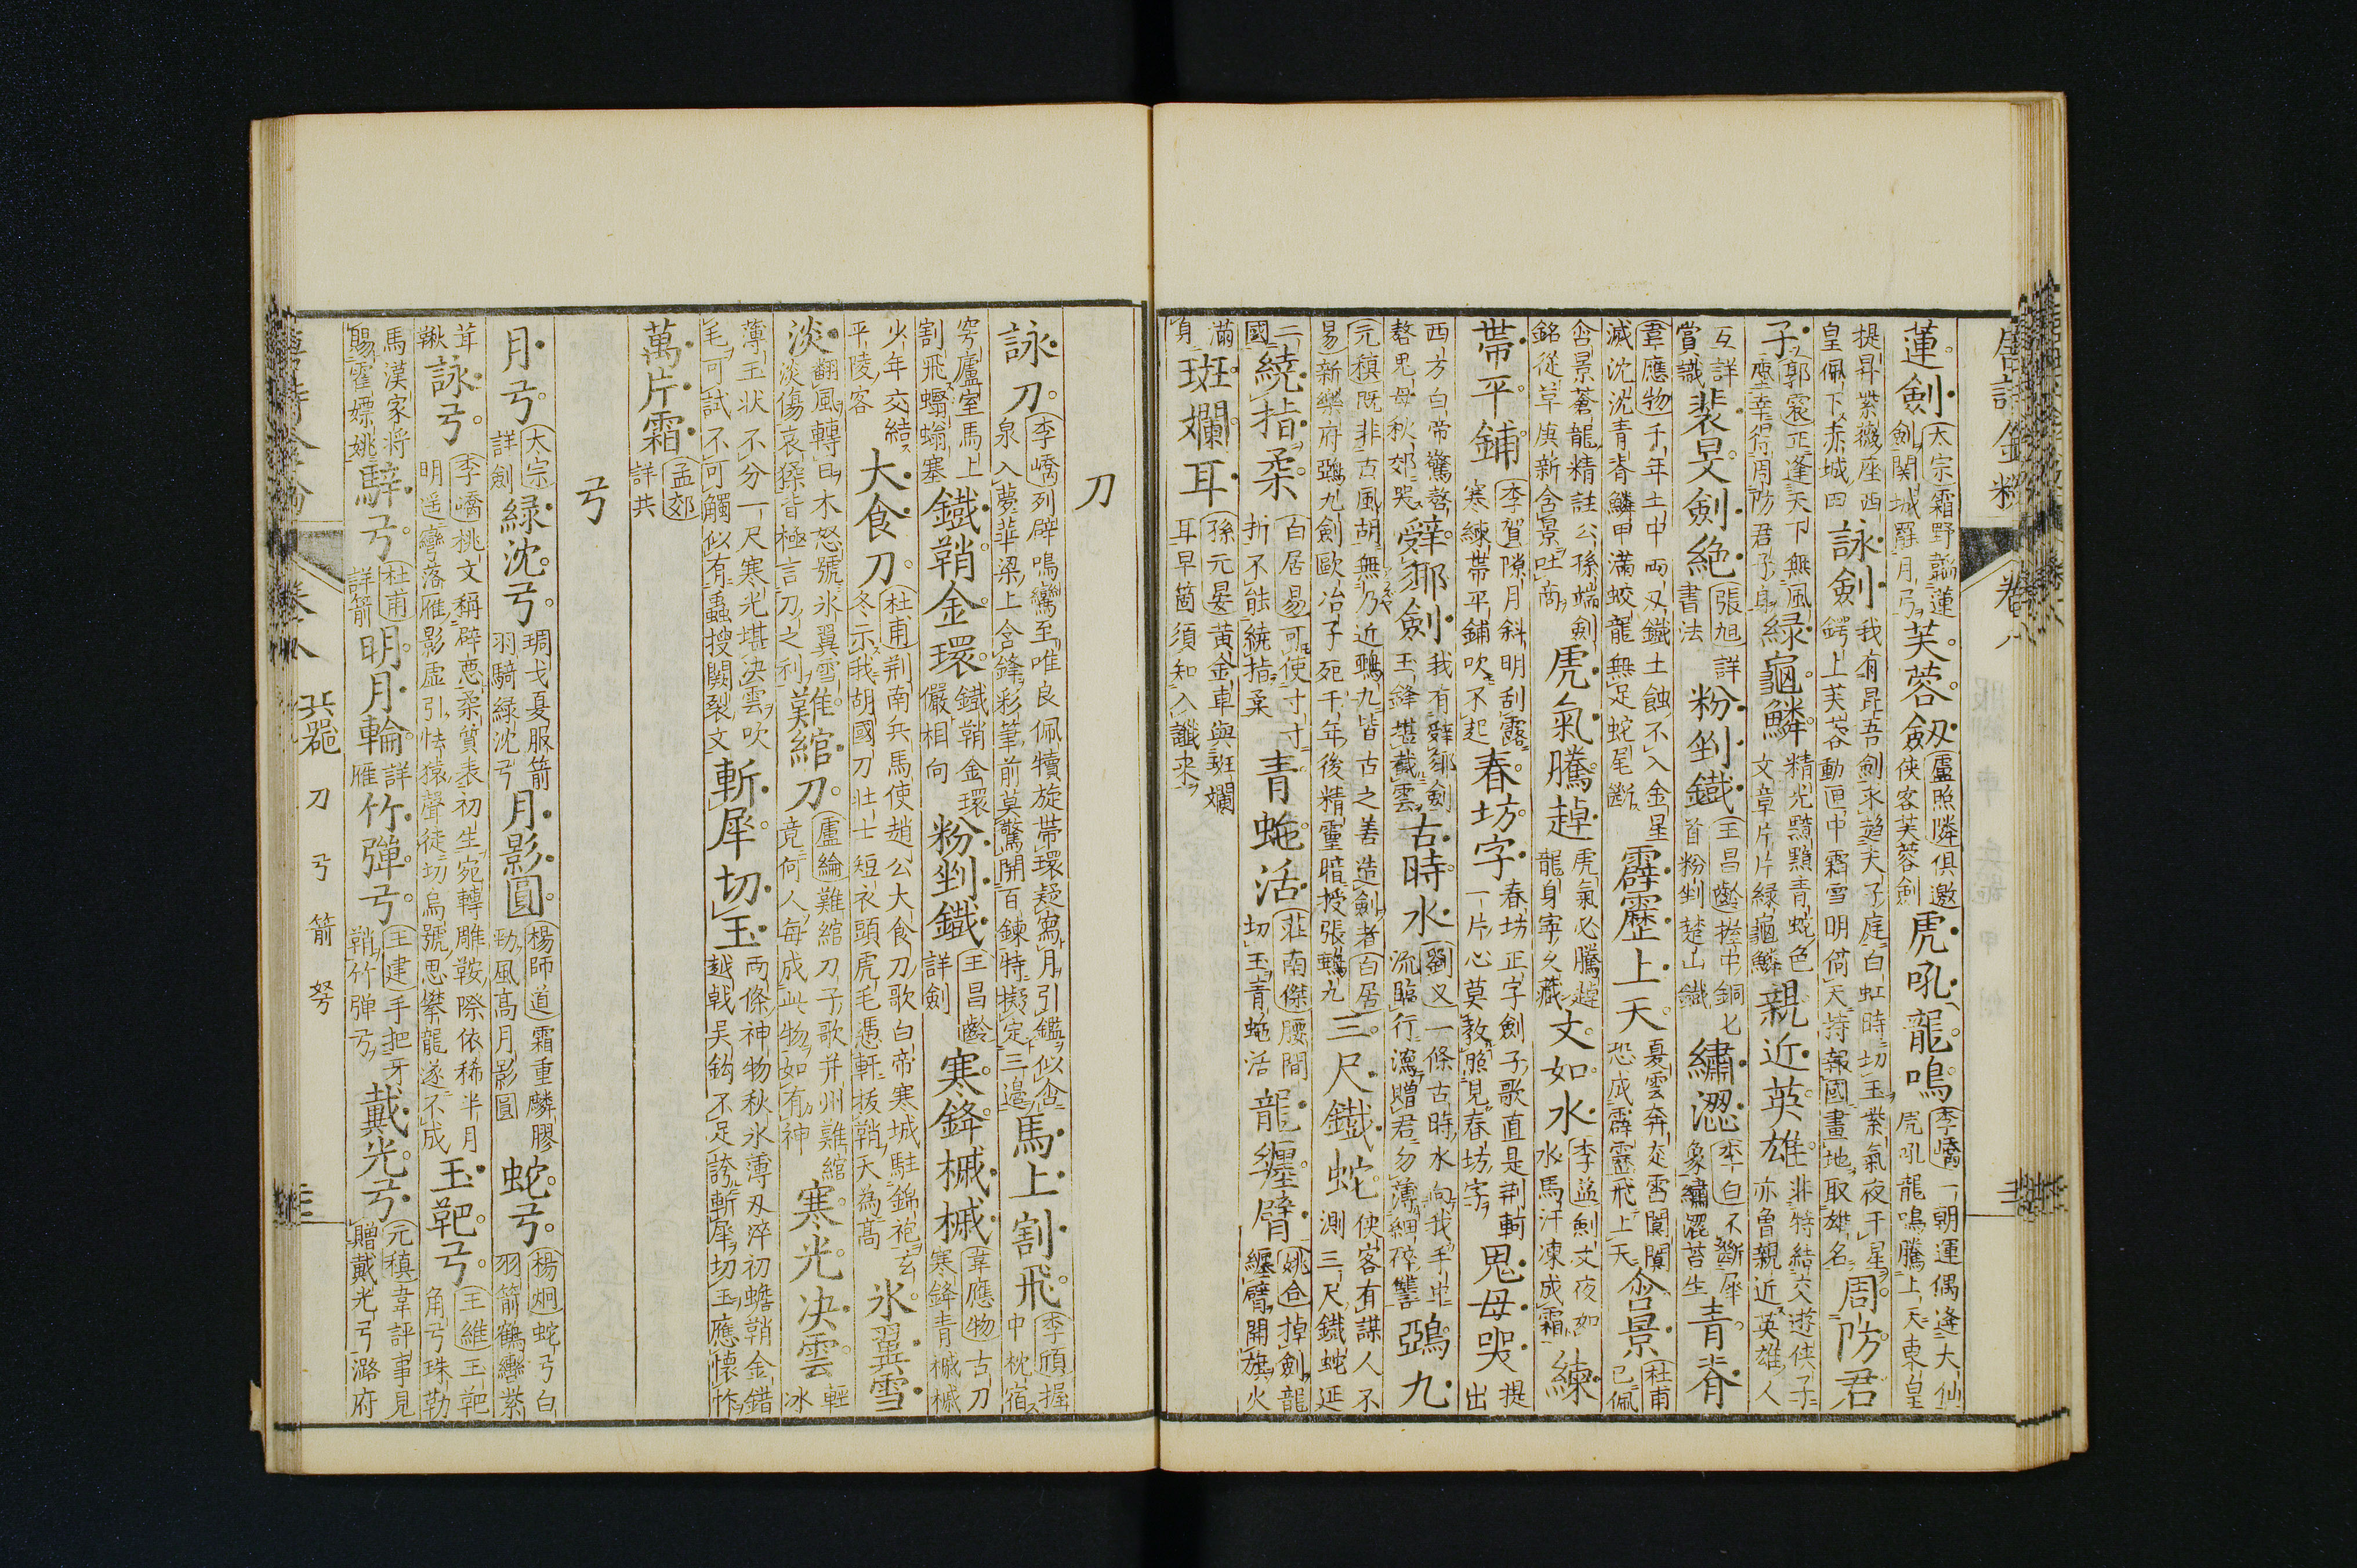 唐詩金粉 卷八
蓮劍 太宗霜野韜蓮劍関城罷月弓 芙蓉劔 盧照隣俱邀俠客芙蓉劍 虎吼龍鳴 李嶠一朝運偶逢大仙虎吼龍鳴騰上天東皇
提昇紫薇座西皇佩下赤城田 詠劍 我有昆吾劍求趨夫子庭白虹時切玉紫氣夜干星鍔上芙蓉動匣中霜雪明倚天持報國畫地取雄名 周防君
子 郭震正逢天下無風塵幸得周防君子身 緑龜鱗 精光黯黯青蛇色文章片片緑龜鱗 親近英雄 非特結交遊俠子亦曾親近英雄人
互詳賞識 裴旻劍絶 張旭詳書法 粉剉鐵 王昌齡握中銅匕首粉剉楚山鐵 繡澀 李白不斷犀象繡澀苔生 青脊
韋應物千年土中兩刃鐵土蝕不入金星滅沈沈青脊鱗甲滿蛟龍無足蛇尾斷 霹靂上天 憂雲奔走雷闐闐恐成霹靂飛上天 含景 杜甫已佩
含景蒼龍精註公孫端劍銘從革庚新含景吐商 虎氣騰趠 虎氣必騰趠龍身寧久藏 文如水 李益劍文夜如水馬汗凍成霜 練
帶平鋪 李賀隙月斜明刮露寒練帶平鋪吹不起 春坊字 春坊正字劍子歌直是荆軻一片心莫教照見春坊字 鬼母哭 提出
西方白帝驚嗸嗸鬼母秋郊哭 辤耶劍 我有辤郷劍玉鋒堪截雲 古時水 劉叉一條古時水向我手中流臨行瀉贈君勿薄細碎讐 鵶九
元稹既非古風胡無乃近鵶九皆古之善造劍者白居易新樂府鵶九劍歐冶子死千年後精靈暗授張鵶九 三尺鐵蛇 俠客有謀人不測三尺鐵蛇延
二國 繞指柔 白居易可使寸寸折不能繞指柔 青虵活 莊南傑腰間切玉青虵活 龍纏臂 姚合掉劍龍纏臂開旗火
滿身 斑斕耳 孫元晏黃金車與斑斕耳早箇須知入讖来
刀
詠刀 李嶠列辟鳴鸞至唯良佩犢旋帶環疑寫月引鑑似含泉入夢華梁上含鋒彩筆前莫驚開百鍊特擬定三邊 馬上割飛 李頎握中枕宿
穹廬室馬上割飛蠮螉塞 鐵鞘金環 鐵鞘金環儼相向 粉剉鐵 王昌齡詳劍 寒鋒槭槭 韋應物古刀寒鋒青槭槭
少年交結平陵客 大食刀 杜甫荆南兵馬使趙公大食刀歌白帝寒城駐錦袍玄冬示我胡國刀壯士短衣頭虎毛憑軒拔鞘天為高 氷翼雪
淡 翻風轉日木怒號氷翼雪淡傷哀猱皆極言刀之利 難綰刀 盧綸難綰刀子歌并州難綰竟何人每成此物如有神 寒光决雲 輕冰
薄玉状不分一尺寒光堪决雲吹毛可試不可觸似有蟲搜闕裂文 斬犀切玉 兩條神物秋氷薄刃淬初蟾鞘金錯越戟吴鈎不足誇斬犀切玉應懷怍
萬片霜 孟郊詳共
弓
月弓 太宗詳劍 緑沈弓 琱戈夏服箭羽騎緑沈弓 月影圓 楊師道霜重麟膠勁風髙月影圓 蛇弓 楊炯蛇弓白羽箭鶴轡紫
茸鞦 詠弓 李嶠桃文稱辟惡桑質表初生宛轉雕鞍際依稀半月明遥彎落雁影虚引怯猿聲徒切烏號思攀龍遂不成 玉靶弓 王維玉靶角弓珠勒
馬漢家将賜霍嫖姚 騂弓 杜甫詳箭 明月輪 詳雁 竹弾弓 王建手把牙鞘竹弾弓 戴光弓 元稹韋評事見贈戴光弓潞府
兵器 刀 弓 箭 弩